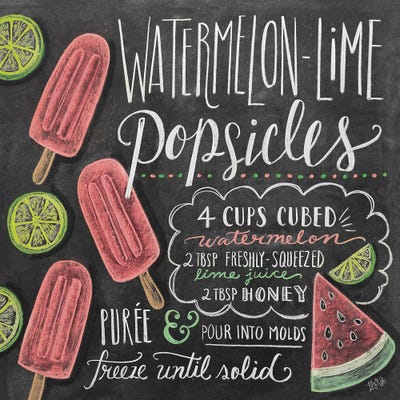 WATERMELON-LIME
Popsicles
4 CUPS CUBED
watermelon
2 TBSP FRESHLY-SQUEEZED
lime juice
2 TBSP HONEY
PURÉE & POUR INTO MOLDS
freeze until solid